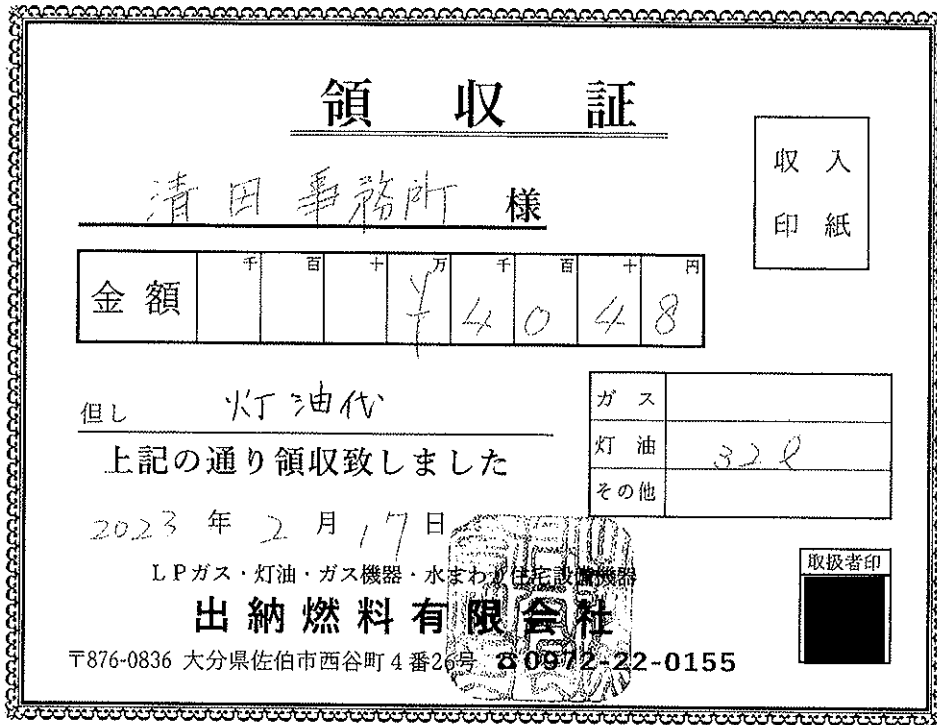 領収証
収入
印紙
清田事務所 様
金額 千 百 十 万 千 百 十 円
¥4048
但し 灯油代
上記の通り領収致しました
ガス
灯油 32ℓ
その他
2023年2月17日
LPガス・灯油・ガス機器・水まわり住宅設備機器
出納燃料有限会社
〒876-0836 大分県佐伯市西谷町4番26号 ☎0972-22-0155
取扱者印